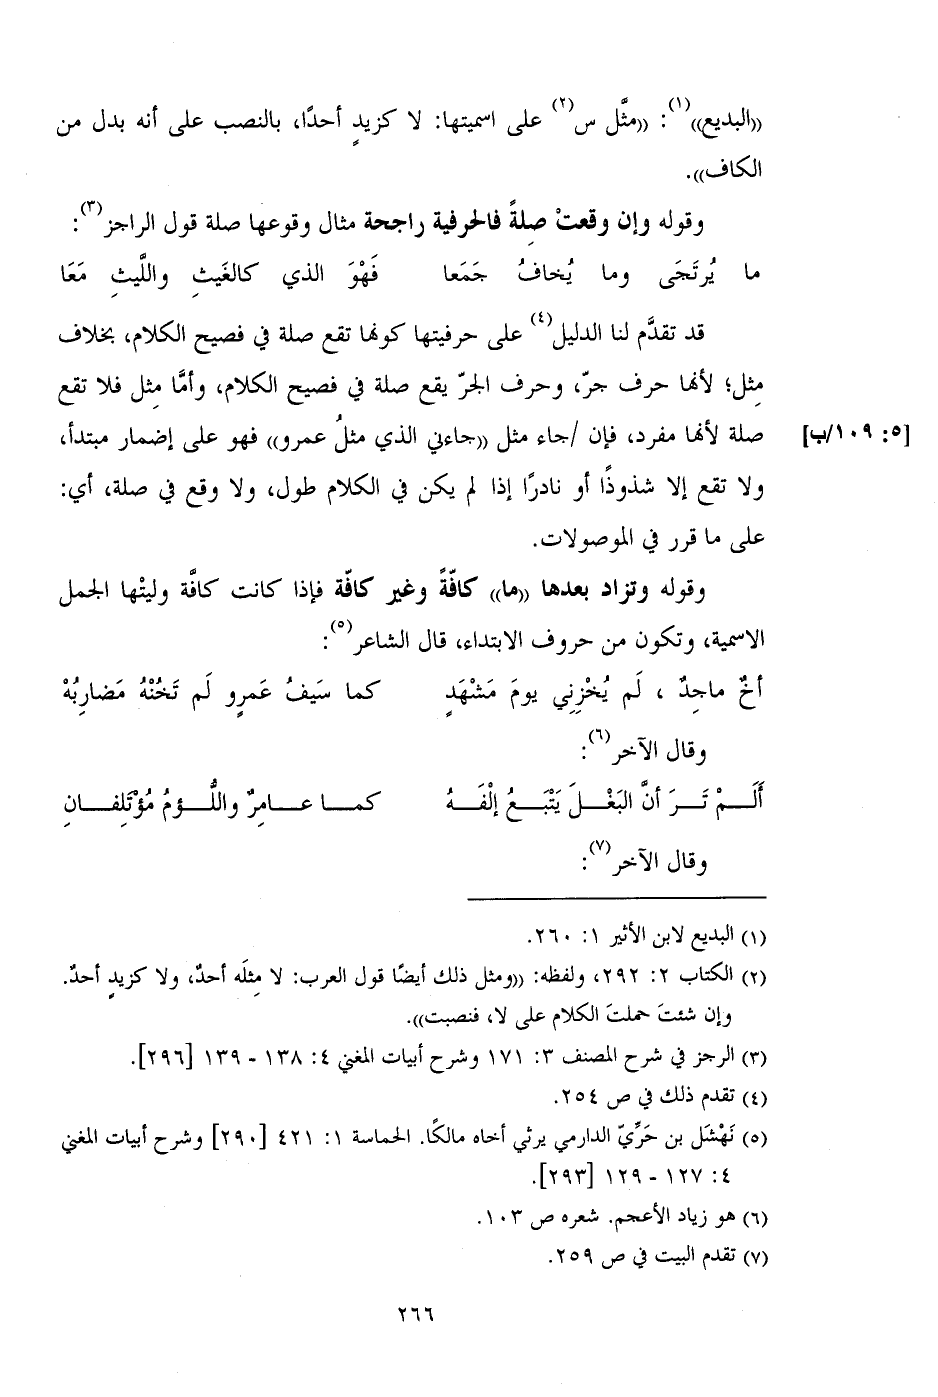 «البديع»(١): «مثَّل س(٢) على اسميتها: لا كزيدٍ أحدًا، بالنصب على أنه بدل من
الكاف».
وقوله وإن وقعتْ صِلةً فالحرفية راجحة مثال وقوعها صلة قول الراجز(٣):
ما يُرتَجَى وما يُخافُ جَمَعا فَهْوَ الذي كالغَيثِ واللَّيثِ مَعَا
قد تقدَّم لنا الدليل(٤) على حرفيتها كونها تقع صلة في فصيح الكلام، بخلاف
مِثل؛ لأنها حرف جرّ، وحرف الجرّ يقع صلة في فصيح الكلام، وأمَّا مِثل فلا تقع
[٥: ١٠٩/ب] صلة لأنها مفرد، فإن /جاء مثل «جاءني الذي مثلُ عمرو» فهو على إضمار مبتدأ،
ولا تقع إلا شذوذًا أو نادرًا إذا لم يكن في الكلام طول، ولا وقع في صلة، أي:
على ما قرر في الموصولات.
وقوله وتزاد بعدها «ما» كافّةً وغير كافّة فإذا كانت كافَّة وليتْها الجمل
الاسمية، وتكون من حروف الابتداء، قال الشاعر(٥):
أخٌ ماجِدٌ ، لَم يُخْزِنِي يومَ مَشْهَدٍ كما سَيفُ عَمرٍو لَم تَخُنْهُ مَضارِبُهْ
وقال الآخر(٦):
أَلَـمْ تَـرَ أنَّ البَغْـلَ يَتْبَـعُ إلْفَـهُ كمـا عـامِرٌ واللُّـؤمُ مُؤْتَلِفـانِ
وقال الآخر(٧):
(١) البديع لابن الأثير ١: ٢٦٠.
(٢) الكتاب ٢: ٢٩٢، ولفظه: «ومثل ذلك أيضًا قول العرب: لا مِثلَه أحدٌ، ولا كزيدٍ أحدٌ.
وإن شئتَ حملتَ الكلام على لا، فنصبت».
(٣) الرجز في شرح المصنف ٣: ١٧١ وشرح أبيات المغني ٤: ١٣٨ - ١٣٩ [٢٩٦].
(٤) تقدم ذلك في ص ٢٥٤.
(٥) نَهْشَل بن حَرِّيّ الدارمي يرثي أخاه مالكًا. الحماسة ١: ٤٢١ [٢٩٠] وشرح أبيات المغني
٤: ١٢٧ - ١٢٩ [٢٩٣].
(٦) هو زياد الأعجم. شعره ص ١٠٣.
(٧) تقدم البيت في ص ٢٥٩.
٢٦٦